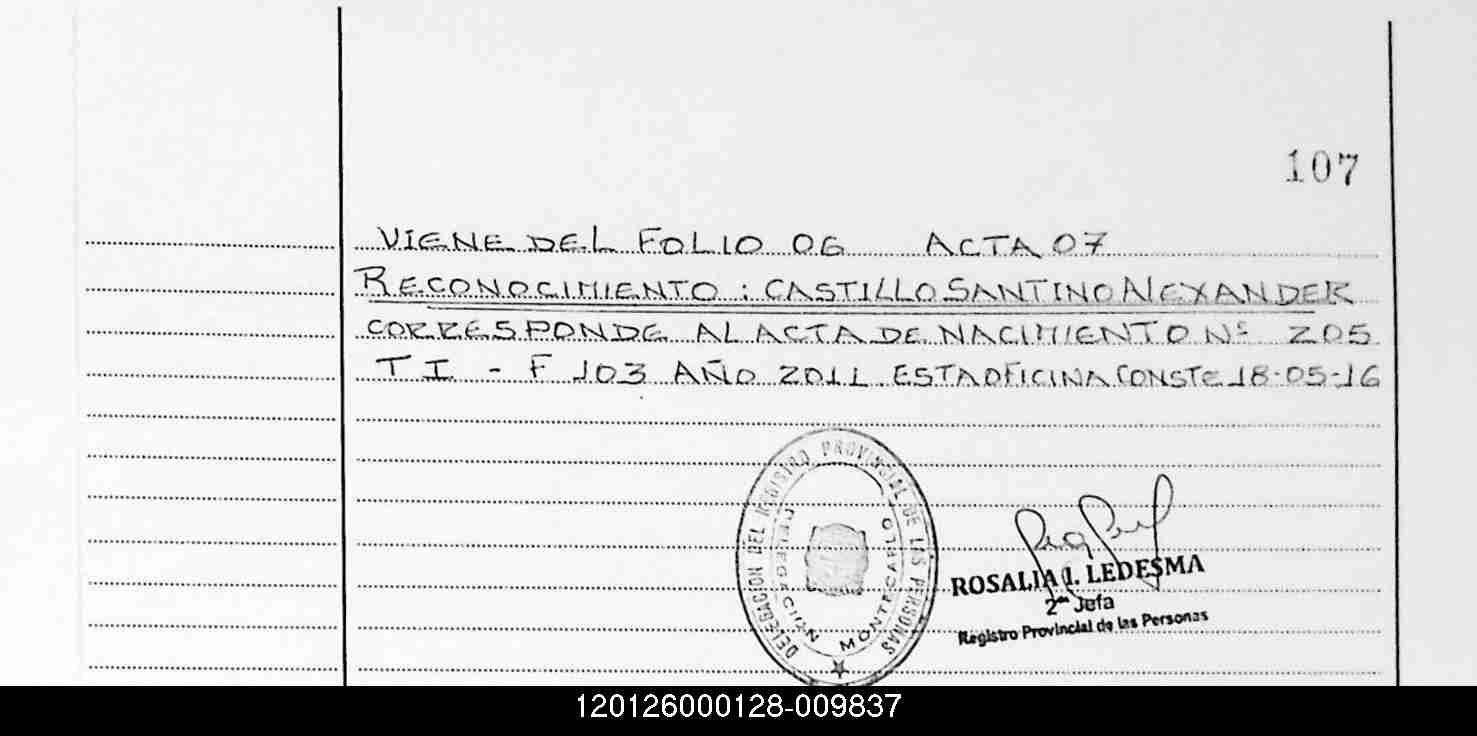 107
VIENE DEL FOLIO 06 ACTA 07
RECONOCIMIENTO : CASTILLO SANTINO ALEXANDER
CORRESPONDE AL ACTA DE NACIMIENTO Nº 205
T I - F 103 AÑO 2011 ESTA OFICINA CONSTE 18-05-16
DELEGACION DEL REGISTRO PROVINCIAL DE LAS PERSONAS
DELEGACION MONTECARLO
ROSALIA I. LEDESMA
2da Jefa
Registro Provincial de las Personas
120126000128-009837